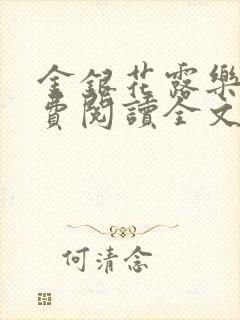 金銀花露樂
費閱讀全文
何清念